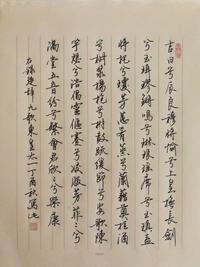 吉日兮辰良穆将愉兮上皇撫長劍
兮玉珥璆鏘鳴兮琳琅瑶席兮玉瑱盍
将把兮瓊芳蕙肴蒸兮蘭藉奠桂酒
兮椒漿揚枹兮拊鼓疏緩節兮安歌陳
竽瑟兮浩倡靈偃蹇兮姣服芳菲菲兮
滿堂五音纷兮繁會君欣欣兮樂康
右録楚辞九歌東皇太一丁酉秋